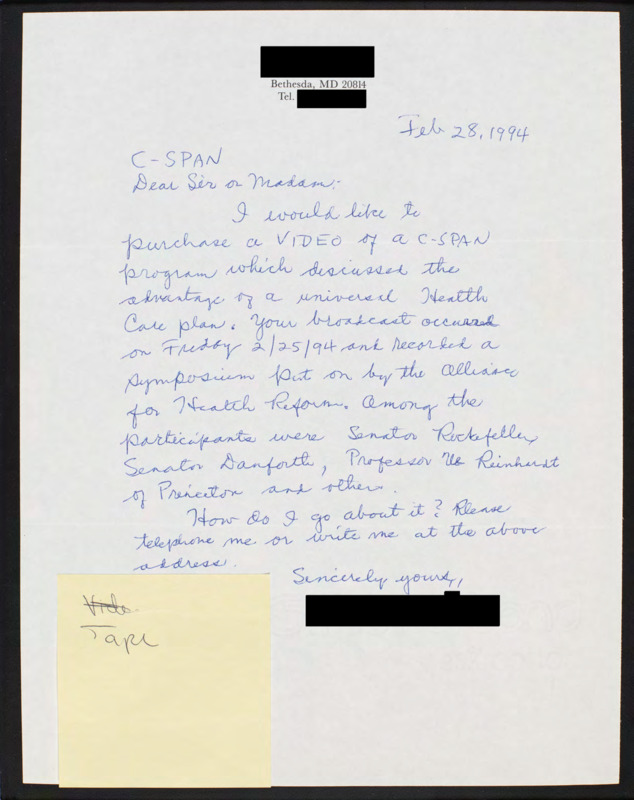 Bethesda, MD 20814
Tel.
Feb 28, 1994
C-SPAN
Dear Sir or Madam:
I would like to
purchase a VIDEO of a C-SPAN
program which discussed the
advantage of a universal Health
Care plan. Your broadcast occurred
on Friday 2/25/94 and recorded a
symposium put on by the Alliance
for Health Reform. Among the
participants were Senator Rockefeller,
Senator Danforth, Professor Reinhardt
of Princeton and others.
How do I go about it? Please
telephone me or write me at the above
address.
Sincerely yours,
Video
Tape